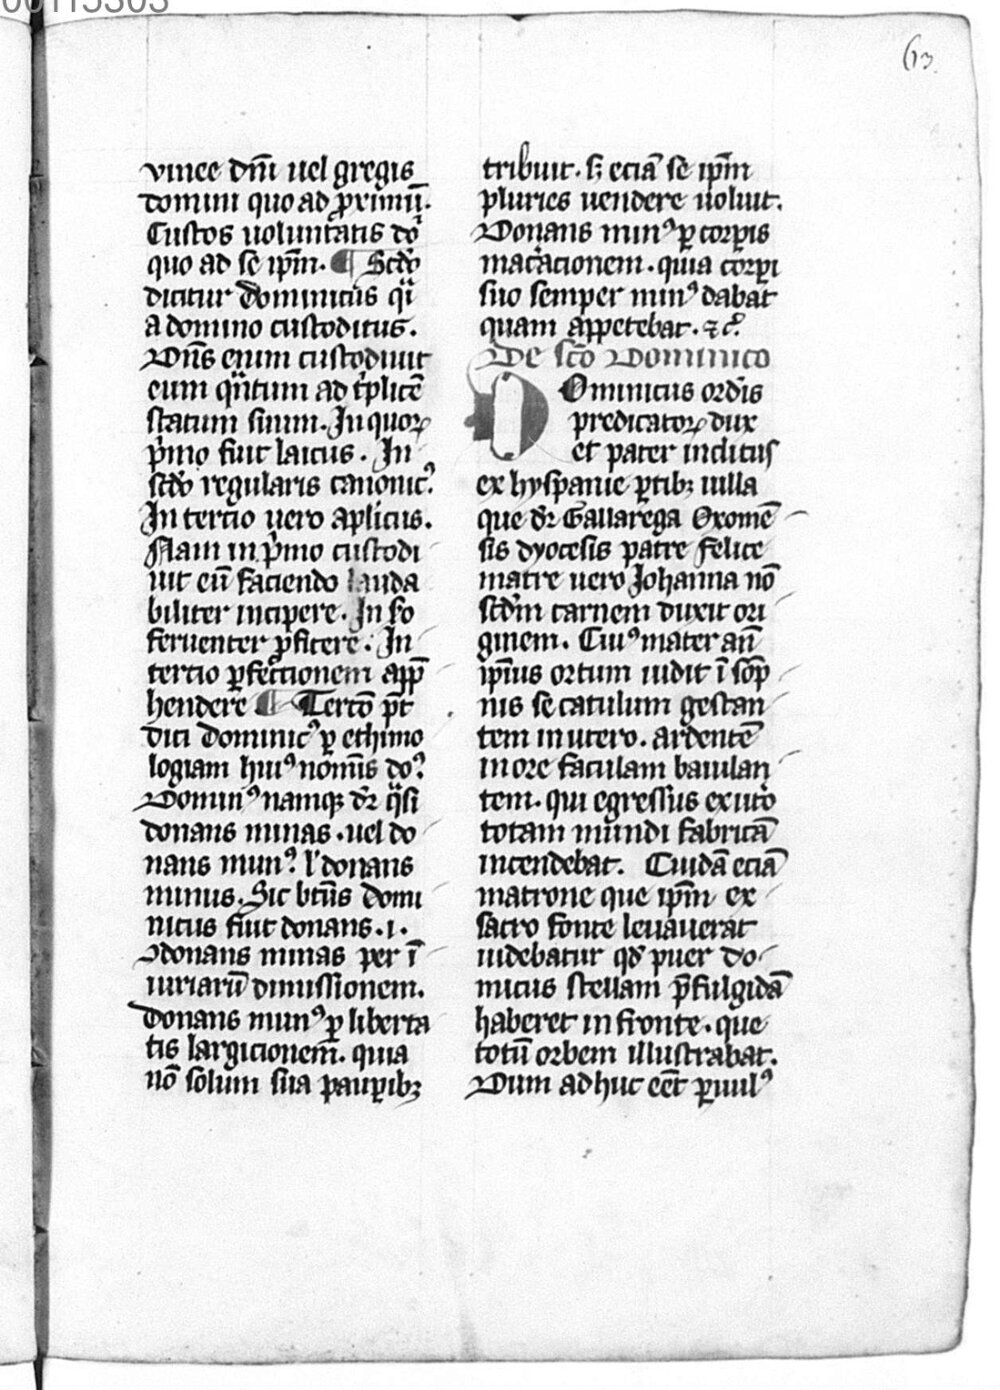 00115303
63
vinee dn̄i uel gregis
domini quo ad ꝓximū.
Custos uoluntatis do᷑
quo ad se ip̄m. ¶ Scd̓o
dicitur dominicus q̈i
a domino custoditus.
Dn̄s enim custodiuit
eum q̈ntum ad t̓plicē
statum suum. In quoꝝ
p̓mo fuit laicus. In
scd̓o regularis canonicꝰ.
In tercio uero apl̓icus.
Nam in p̓mo custodi
uit eū faciendo lauda
biliter incipere. In so
feruenter ꝓficere. In
tercio ꝑfectionem app̄
hendere ¶ Tercō pt̄
dici dominicꝰ ꝑ ethimo
logiam huiꝰ nomīs do᷑ꝰ
Dominꝰ namqꝫ dr̄ q̈si
donans minas. uel do
nans munꝰ. l̓ donans
minus. Sic btūs domi
nicus fuit donans .i.
ↄdonans minas per ī
iuriarū dimissionem.
Donans munꝰ ꝑ liberta
tis largicionem. quia
nō solum sua pauꝑibꝫ
tribuit. sꝫ eciā se ip̄m
pluries uendere uoluit.
Donans minꝰ ꝑ corꝑis
mac̓acionem. quia corꝑi
suo semper minꝰ dabat
quam appetebat. ⁊ cꝰ.
De sc̄o Dominico
Dominicus ordīs
predicatoꝝ dux
et pater inclitus
ex hyspanie ꝑtibꝫ uilla
que dr̄ Gallarega Oxomē
sis dyocesis patre felice
matre uero Johanna nō
scd̓m carnem duxit ori
ginem. Cuiꝰ mater an̄
ip̄ius ortum uidit ī sōp
nis se catulum gestan
tem in utero. ardentē
in ore faculam baiulan
tem. qui egressus ex ut̓o
totam mundi fabricā
incendebat. Cuidā eciā
matrone que ip̄m ex
sacro fonte leuauerat
uidebatur qd̓ puer do
micus stellam p̄fulgidā
haberet in fronte. que
totū orbem illustrabat.
Dum adhuc eēt ꝑuulꝰ